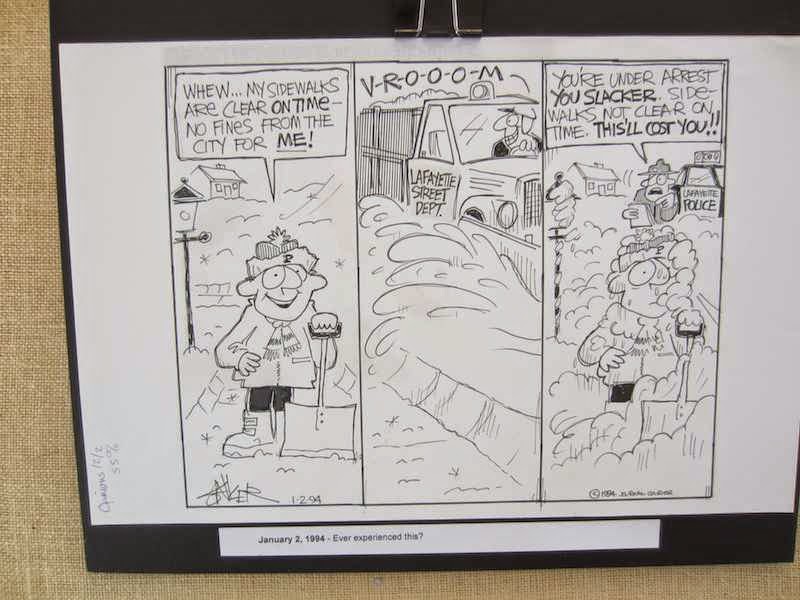 WHEW... MY SIDEWALKS
ARE CLEAR ON TIME —
NO FINES FROM THE
CITY FOR ME!
V-R-O-O-O-M
LAFAYETTE
STREET
DEPT.
YOU'RE UNDER ARREST
YOU SLACKER. SIDE-
WALKS NOT CLEAR ON
TIME. THIS'LL COST YOU!!
LAFAYETTE
POLICE
P
P
1-2-94
© 1994 JOURNAL COURIER
Opinions 12/2
55%
January 2, 1994 - Ever experienced this?